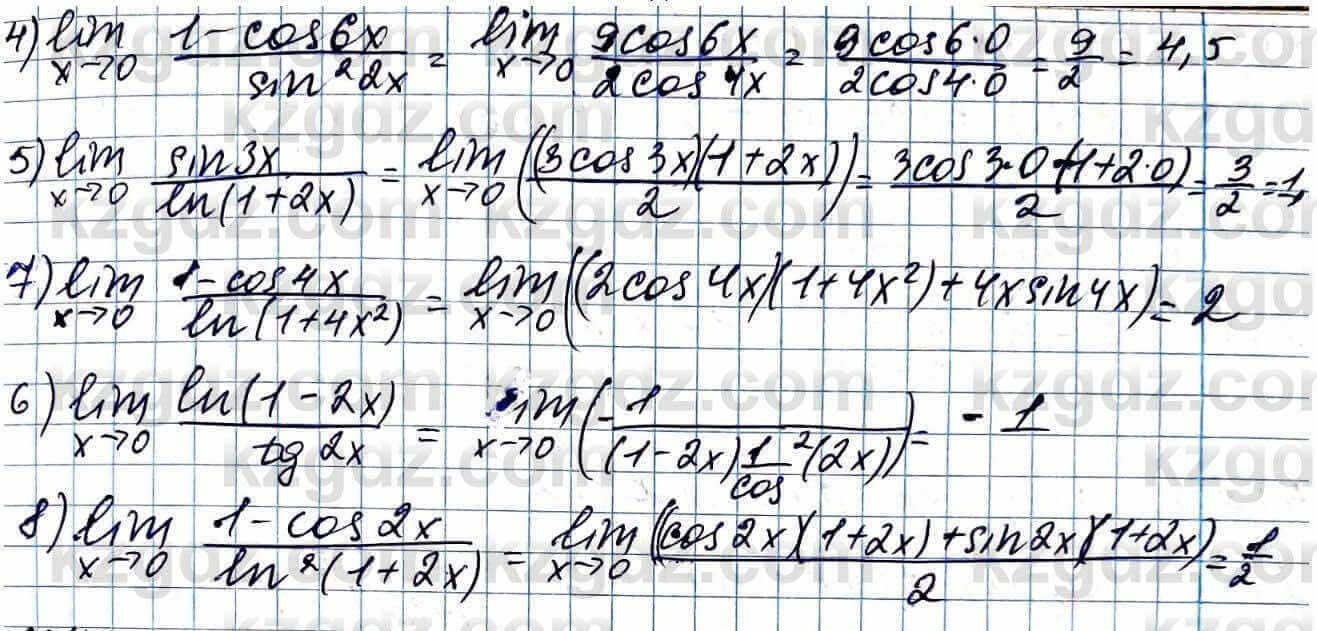 4) lim x→0 (1-cos6x)/(sin²2x) = lim x→0 (9cos6x)/(2cos4x) = (9cos6·0)/(2cos4·0) = 9/2 = 4,5
5) lim x→0 (sin3x)/(ln(1+2x)) = lim x→0 (((3cos3x)(1+2x))/2) = (3cos3·0·(1+2·0))/2 = 3/2 = 1,
7) lim x→0 (1-cos4x)/(ln(1+4x²)) = lim x→0 ((2cos4x)(1+4x²)+4xsin4x) = 2
6) lim x→0 (ln(1-2x))/(tg2x) = lim x→0 (-1/((1-2x) 1/cos ²(2x))) = -1
8) lim x→0 (1-cos2x)/(ln²(1+2x)) = lim x→0 ((cos2x)(1+2x)+sin2x)(1+2x)/2 = 1/2
kzgdz.com